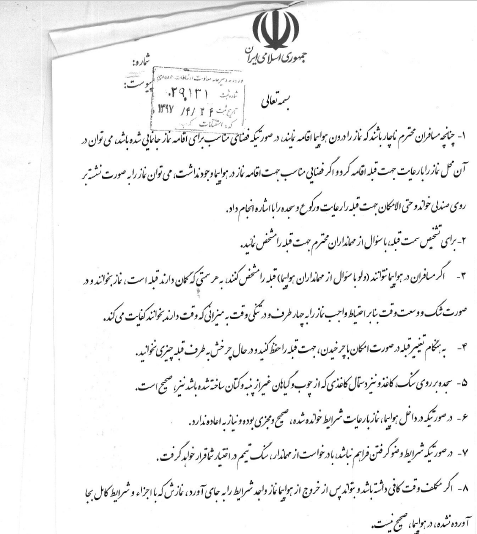 جمهوری اسلامی ایران
شماره:
پیوست:
شماره ثبت ۰۲۹۱۳۱
تاریخ ثبت ۱۳۹۷/۴/۲۴
بسمه تعالی
۱- چنانچه مسافران محترم ناچار باشند که نماز را درون هواپیما اقامه نمایند، در صورتیکه فضای مناسب برای اقامه نماز جانمایی شده باشد، می توان در
آن محل نماز را با رعایت جهت قبله اقامه کرد و اگر فضایی مناسب جهت اقامه نماز در هواپیما وجود نداشت، می توان نماز را به صورت نشسته بر
روی صندلی خواند و حتی الامکان جهت قبله را رعایت و رکوع و سجده را با اشاره انجام داد.
۲- برای تشخیص سمت قبله، با سوال از مهمانداران محترم جهت قبله را مشخص نمائید.
۳- اگر مسافران در هواپیما نتوانند (ولو با سوال از مهمانداران هواپیما) قبله را مشخص کنند، به هر سمتی که گمان دارند قبله است، نماز بخوانند و در
صورت شک و وسعت وقت بنا بر احتیاط واجب نماز را به چهار طرف و در تنگی وقت به میزانی که وقت دارند بخوانند کفایت می کند.
۴- به هنگام تغییر قبله در صورت امکان با چرخیدن، جهت قبله را حفظ کنید و در حال چرخش به طرف قبله چیزی نخوانید.
۵- سجده بر روی سنگ، کاغذ و نیز دستمال کاغذی که از چوب و گیاهان غیر از پنبه و کتان ساخته شده باشد نیز، صحیح است.
۶- در صورتیکه در داخل هواپیما، نماز با رعایت شرایط خوانده شده، صحیح و مجزی بوده و نیاز به اعاده ندارد.
۷- در صورتیکه شرایط وضو گرفتن فراهم نباشد، با درخواست از مهماندار، سنگ تیمم در اختیار شما قرار خواهد گرفت.
۸- اگر مکلف وقت کافی داشته باشد و بتواند پس از خروج از هواپیما نماز واجد شرایط را به جای آورد، نمازش که با اجزاء و شرایط کامل بجا
آورده نشده، در هواپیما، صحیح نیست.